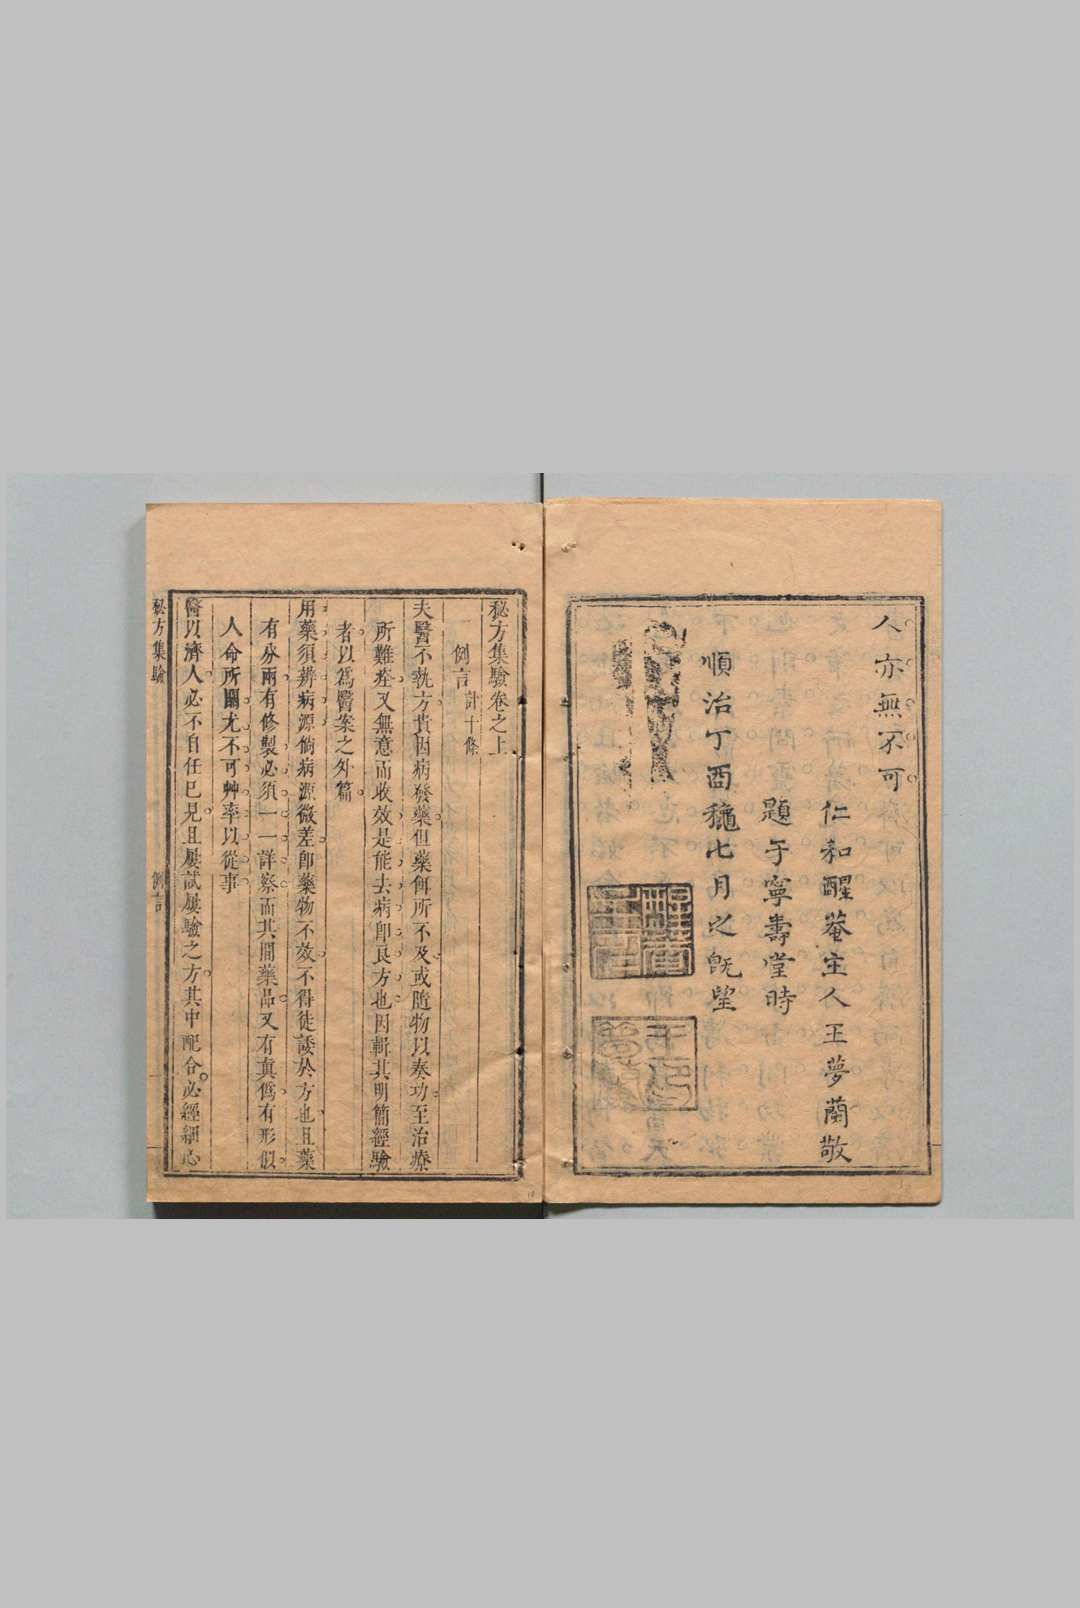 人亦無不可
仁和醒菴主人王夢蘭敬
題于寧壽堂時
順治丁酉穐七月之旣望
秘方集驗卷之上
例言 計十條
夫醫不執方貴因病發藥但藥餌所不及或隨物以奏功至治療
所難痊又無意而收效是能去病卽良方也因輯其明簡經驗
者以爲醫案之外篇
用藥須辨病源倘病源微差卽藥物不效不得徒諉於方也且藥
有分兩有修製必須一一詳察而其間藥品又有眞僞有形似
人命所關尤不可艸率以從事
醫以濟人必不自任已見且屢試屢驗之方其中配合必經細心
秘方集驗
例言